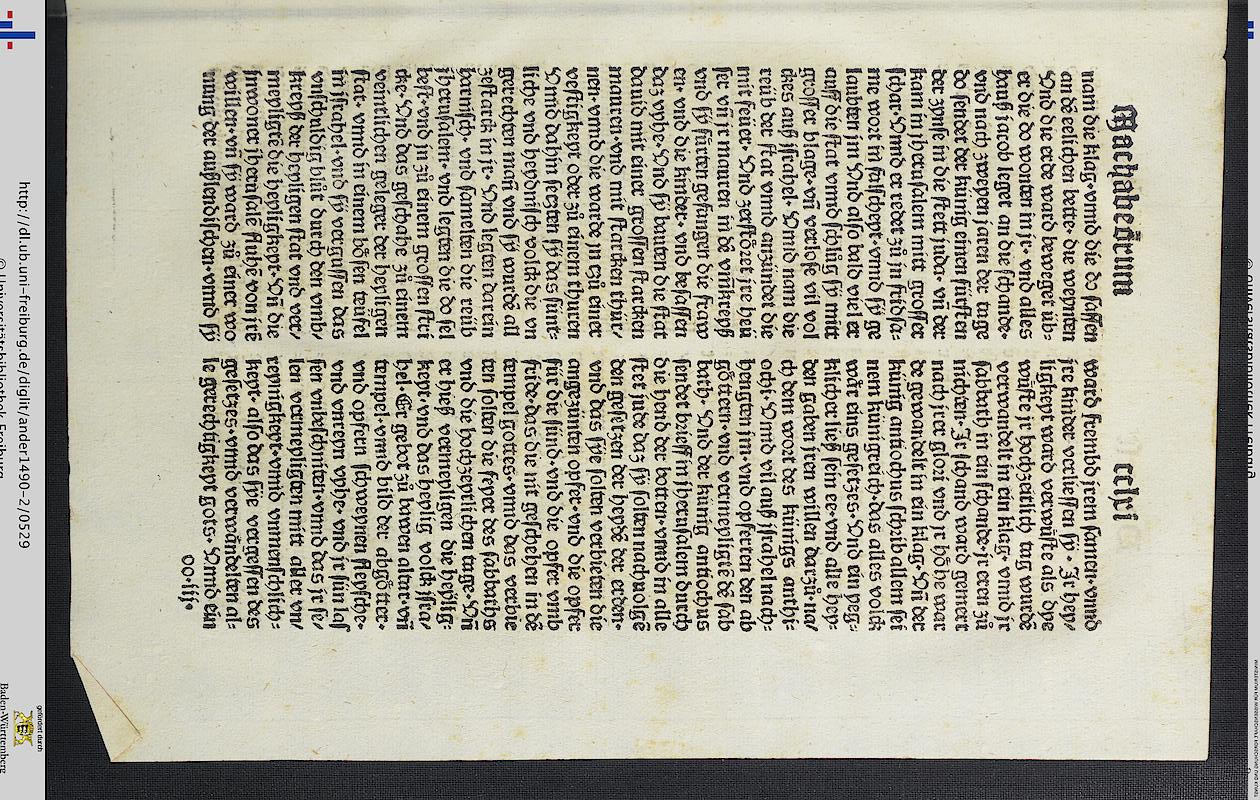 Machabeorum
cclxi
mani die klag. vnnd die do sassen
an dē eelichen bette. die weynten
Vnd die erde ward beweget üb-
er die do wonten in jr. vnd alles
hauß jacob leget an die schande.
vnd nach zweyen jaren der tage
do sendet der künig einen fürsten
der zynse in die stett juda. vñ der
kam in jherusalem mit grosser
schar. Vnnd er redet zů in fridsa-
me wort in falscheyt. vnnd sy ge
laubten jm Vnd also bald viel er
auff die stat vnnd schlůg sy mit
grosser blage. vñ verlose vil vol
ckes auß israhel. Vnnd nam die
reüb der stat vnnd anzündet die
mit feüer. Vnd zerstöret ire heü
ser vñ jr mauren in dē vmkreyß
vnd sy fürten gefangen die fraw
en. vnd die kinder. vnd besassen
daz vyhe. Vnd sy bauten die stat
dauid mit einer grossen starcken
mauren. vnnd mit starcken thür/
nen. vnnd die warde jn zů einer
vestigkeyt oder zů einem thuren
Vnnd dahin sezten sy das sünt-
liche vnd heydnisch volck die vn
gerechten man vnd sy wurdē all
zestarck in jr. Vnd legten darein
harnisch. vnd samelten die reüb
jherusalem. vnd legten die do sel
best. vnd jn zů einem grossen stri
cke. Vnd das geschahe zů einem
veintlichen geleger der heyligen
stat. vnnd zů einem bösen teüfel
in israhel. vnd sy vergussen das
vnschuldig blůt durch den vmb/
kreyß der heyligen stat vnd ver/
meyligtē die heyligkeyt. Vñ die
jnwoner jherusalē fluhē von jrē
willen. vñ sy ward zů einer wo
nung der außlendischen. vnnd sy
ward frembd jrem samen. vnnd
jre kinder verliessen sy. Jr hey/
ligkeyt ward verwüste als dye
wüste jr hochzeitlich tag wurdē
verwandelt in ein klag. vnnd jr
sabbath in ein schande. jr eren zů
nichten. Jr schand ward gemert
nach jrer glori vnd jr höhe war
de gewandelt in ein klag. Vñ der
künig antiochus schrib allem sei
nem kunigreich. das alles volck
wär eins gesetzes. Vnd ein yeg-
klicher ließ sein ee. vnd alle hey-
den gaben jren willen darzů. na/
ch dem wort des künigs anthi-
ochi. Vnnd vil auß israhel nach-
hengten im. vnd opferten den ab
göttern. vnd vermeyligtē dē sab
bath. Vnd der künig antiochus
sendet brieff in jherusalem durch
die hend der botten. vnnd in alle
stet jude das sy solten nachuolgē
den gesetzen der heydē der erden.
vnd das sye solten verbieten die
angezünten opfer. vnd die opfer
für die sünd. vnd die opfer vmb
fride. das die nit geschehen in dē
tempel gottes. vnnd das verbie
ten solten die feyer des sabbaths
vnd die hochzeytlichen tage. Vñ
er hieß vermeyligen die heylig-
keyt. vnd das heylig volck jsra/
hel. Er gebot zů bawen altar. vñ
tempel. vnnd bild der abgötter.
vnd opfern schweynen fleysche.
vnd vnreyn vyhe. vnd jr sün las
sen vnbeschniten. vnnd das jr se/
len vermeyligten mit aller vn/
reynigkeyt. vnnd vnmenschlich-
keyt. also das sye vergessen des
gesetzes. vnnd verwandelten al-
le gerechtigkeyt gots. Vnnd ein
oo. iij.
http://dl.ub.uni-freiburg.de/diglit/ander1490-2/0529
© Universitätsbibliothek Freiburg
gefördert durch
Baden-Württemberg